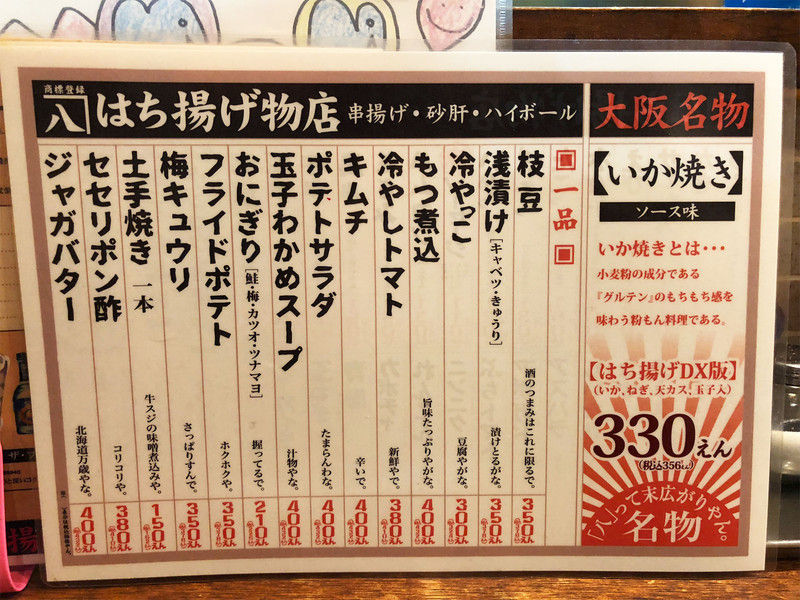 商標登録
八
はち揚げ物店
串揚げ・砂肝・ハイボール
一品
枝豆
酒のつまみはこれに限るで。
350えん
浅漬け[キャベツ・きゅうり]
漬けとるがな。
350えん
冷やっこ
豆腐やがな。
300えん
もつ煮込
旨味たっぷりやがな。
400えん
冷やしトマト
新鮮やで。
380えん
キムチ
辛いで。
400えん
ポテトサラダ
たまらんわな。
400えん
玉子わかめスープ
汁物やな。
400えん
おにぎり[鮭・梅・カツオ・ツナマヨ]
握ってるで。
210えん
フライドポテト
ホクホクや。
350えん
梅キュウリ
さっぱりすんで。
350えん
土手焼き 一本
牛スジの味噌煮込みや。
150えん
セセリポン酢
コリコリや。
380えん
ジャガバター
北海道万歳やな。
400えん
大阪名物
【いか焼き】
ソース味
いか焼きとは・・・
小麦粉の成分である
『グルテン』のもちもち感を
味わう粉もん料理である。
【はち揚げDX版】
(いか、ねぎ、天カス、玉子入)
330えん
(税込356えん)
「八」って末広がりやん。
名物